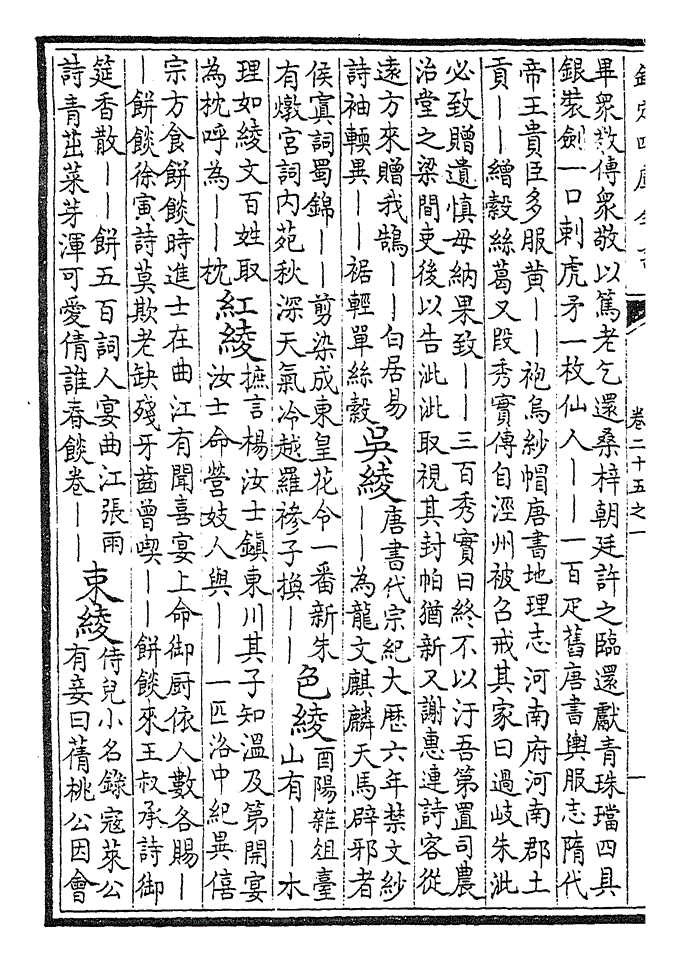 欽定四庫全書
卷二十五之一
畢衆敬傳衆敬以篤老乞還桑梓朝廷許之臨還獻青珠璫四具
銀裝劍一口刺虎矛一枚仙人——一百疋舊唐書輿服志隋代
帝王貴臣多服黄——袍烏紗帽唐書地理志河南府河南郡土
貢——繒縠絲葛又段秀實傳自涇州被召戒其家曰過岐朱泚
必致贈遺慎毋納果致——三百秀實曰終不以汙吾第置司農
治堂之梁間吏後以告泚泚取視其封帕猶新又謝惠連詩客從
遠方來贈我鵠——白居易
詩袖輭異——裾輕單絲縠
吳綾
唐書代宗紀大歴六年禁文紗
——為龍文麒麟天馬辟邪者
侯寘詞蜀錦——剪染成東皇花令一番新朱
有燉宫詞内苑秋深天氣冷越羅襂子換——
色綾
酉陽雜俎臺
山有——水
理如綾文百姓取
為枕呼為——枕
紅綾
摭言楊汝士鎮東川其子知溫及第開宴
汝士命營妓人與——一匹洛中紀異僖
宗方食餅餤時進士在曲江有聞喜宴上命御厨依人數各賜—
—餅餤徐寅詩莫欺老缺殘牙齒曾喫——餅餤來王叔承詩御
筵香散——餅五百詞人宴曲江張雨
詩青茁菜芽渾可愛倩誰春餤卷——
束綾
侍兒小名錄寇萊公
有妾曰蒨桃公因會